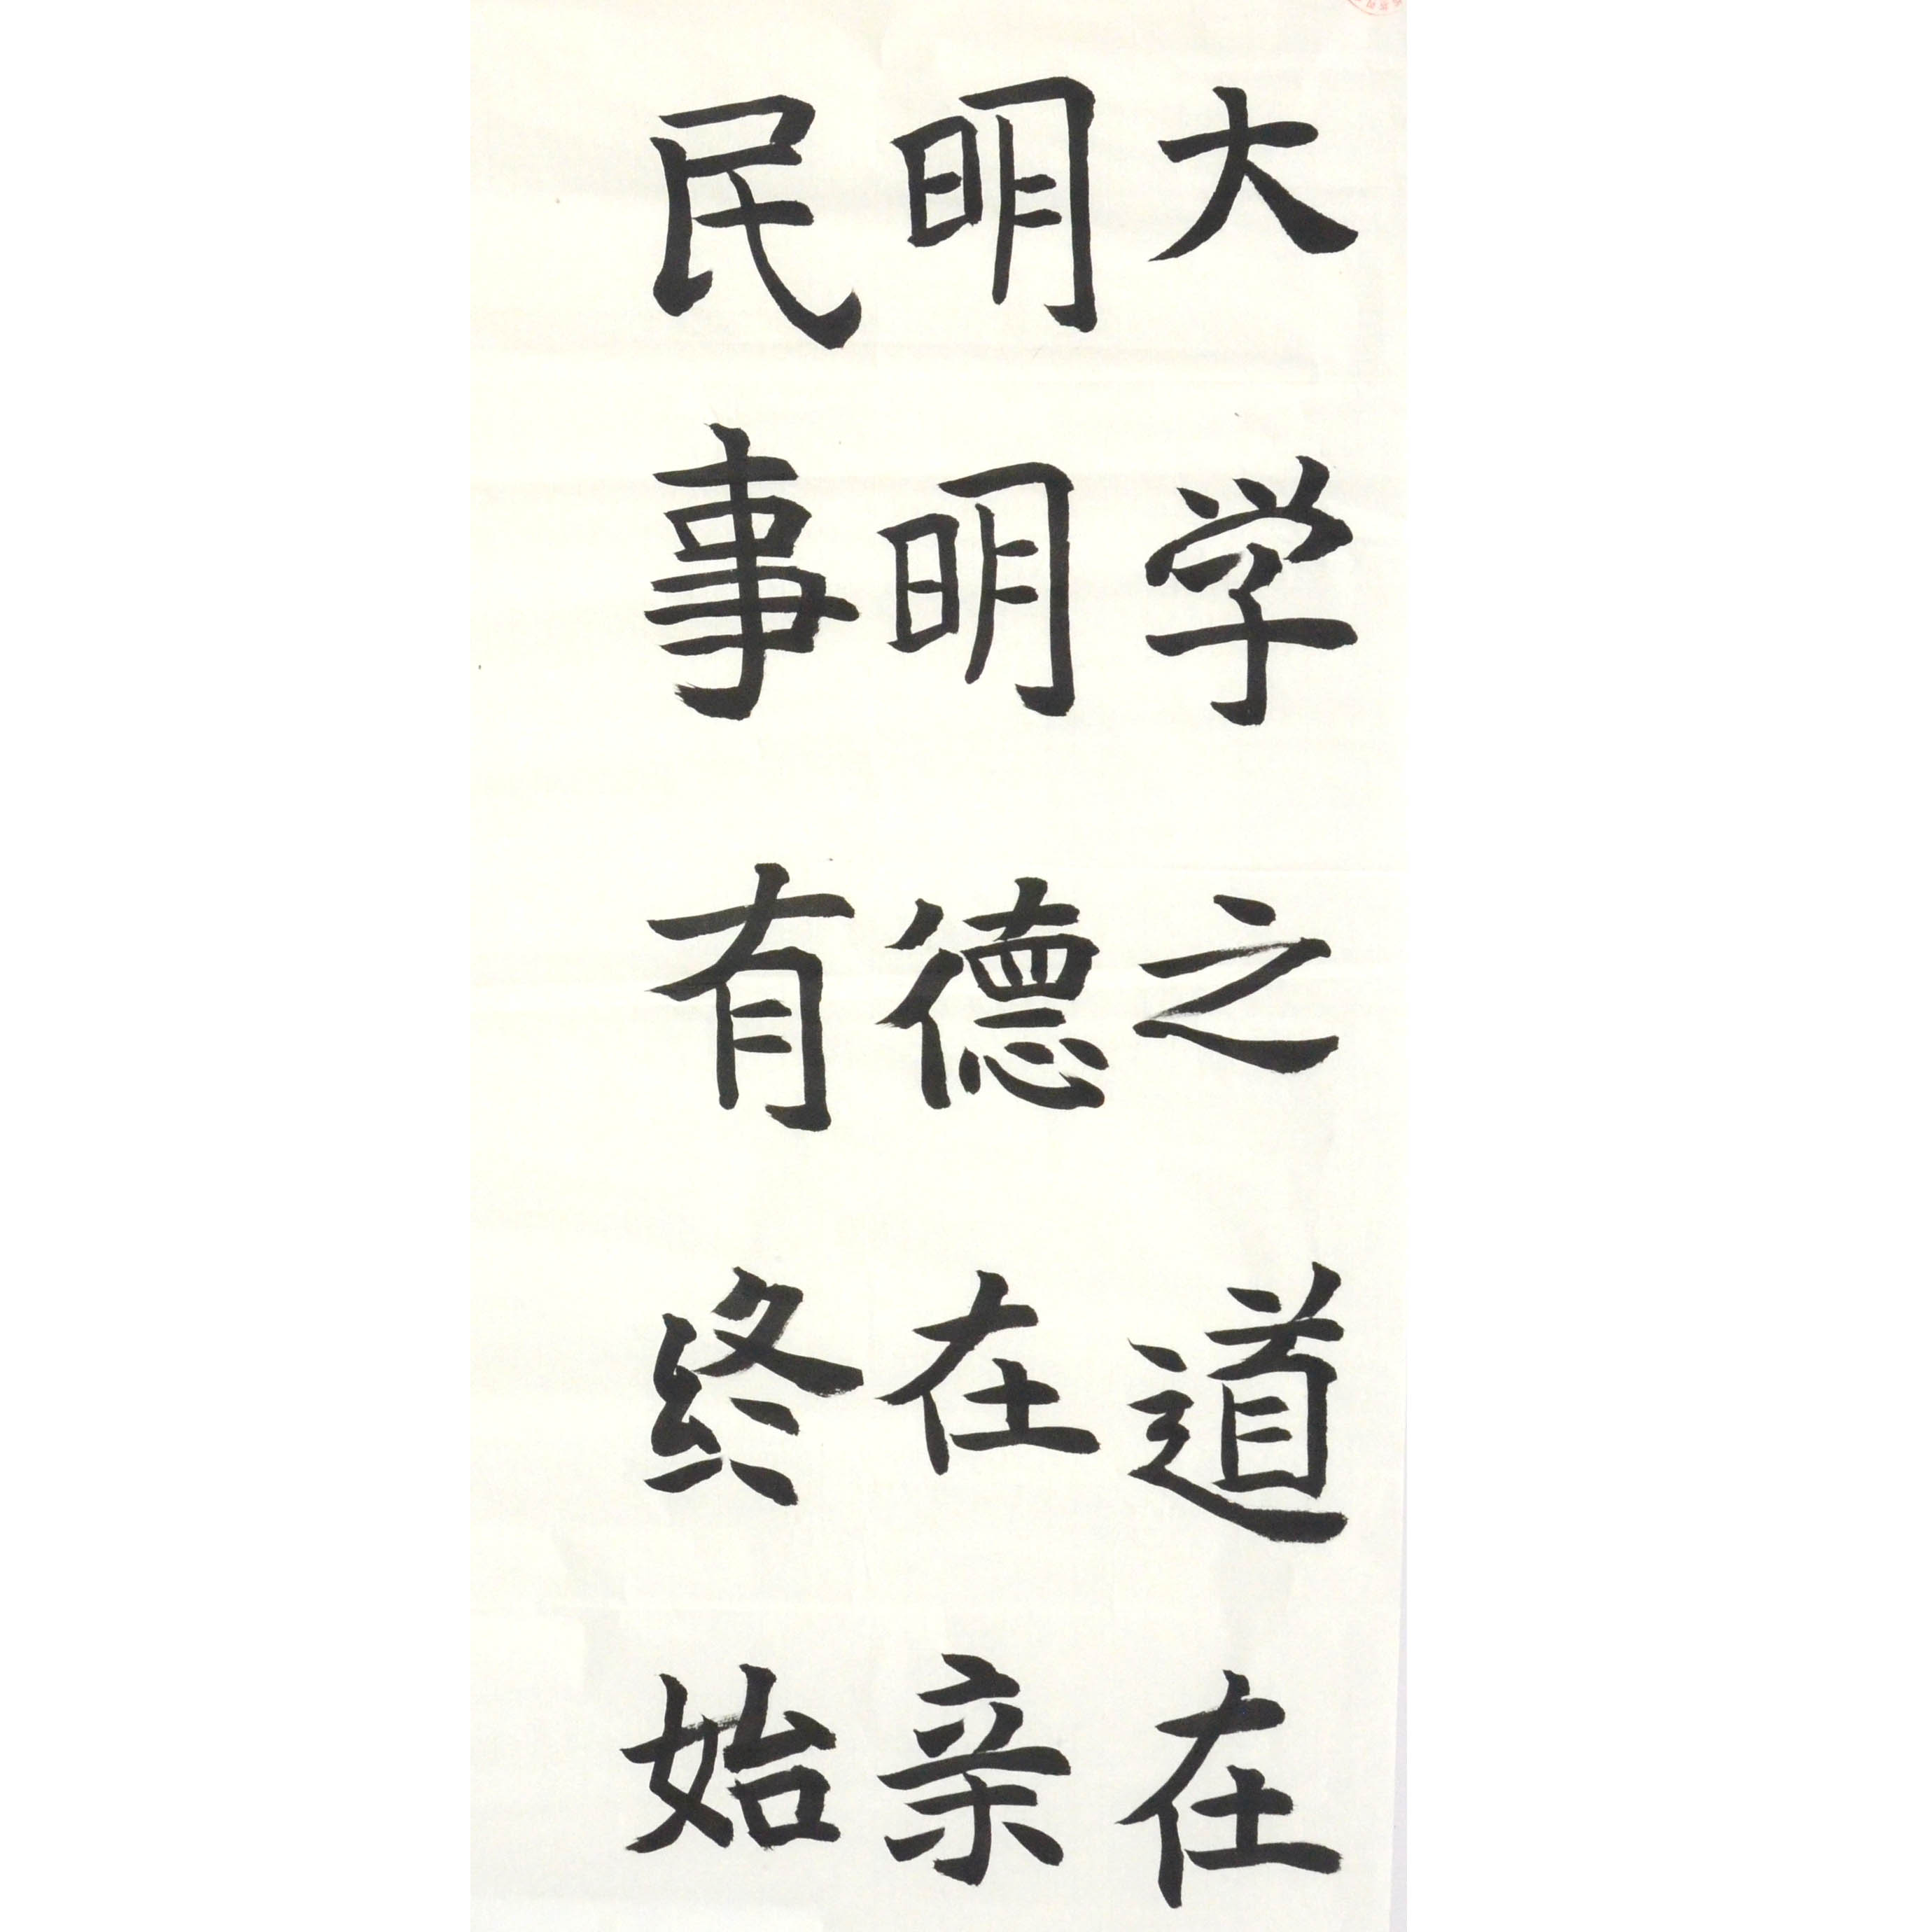 大学之道在
明明德在亲
民事有终始